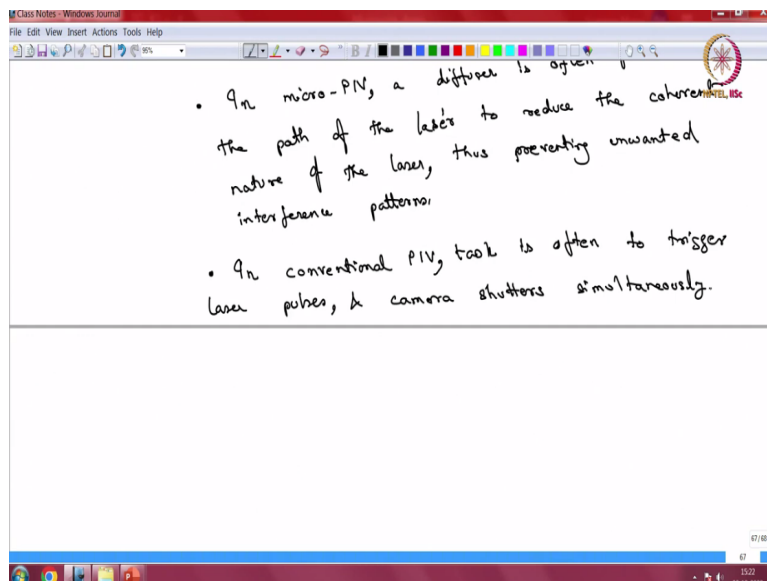 Class Notes - Windows Journal
File Edit View Insert Actions Tools Help
95%
NPTEL, IISc
• In micro-PIV, a diffuser is often
the path of the laser to reduce the coherent
nature of the laser, thus preventing unwanted
interference patterns.
• In conventional PIV, task is often to trigger
laser pulses, & camera shutters simultaneously.
67/68
67
15:22